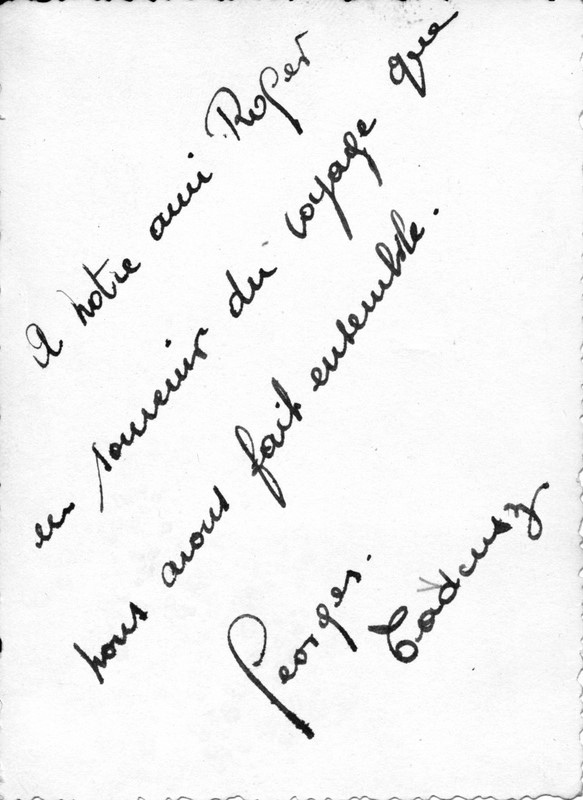 A notre ami Roger
en souvenir du voyage que
nous avons fait ensemble.
Georges. Tadeusz